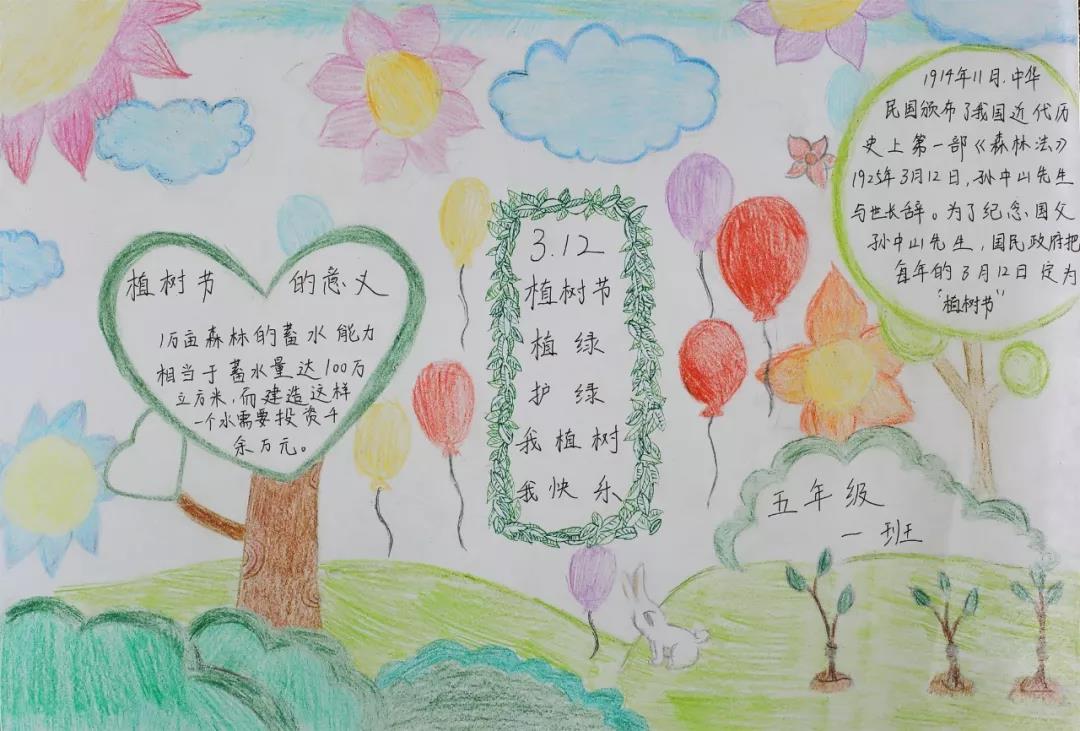 植树节 的意义
1万亩森林的蓄水能力
相当于蓄水量达100万
立方米,而建造这样
一个水需要投资千
余万元。
3.12
植树节
植绿
护绿
我植树
我快乐
1914年11月.中华
民国颁布了我国近代历
史上第一部《森林法》
1925年3月12日,孙中山先生
与世长辞。为了纪念国父
孙中山先生,国民政府把
每年的3月12日定为
"植树节"
五年级
一班